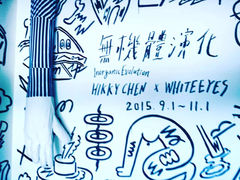 無機體演化
Inorganic Evolution
HIKKY CHEN x WHITEEYES
2015.9.1~11.1